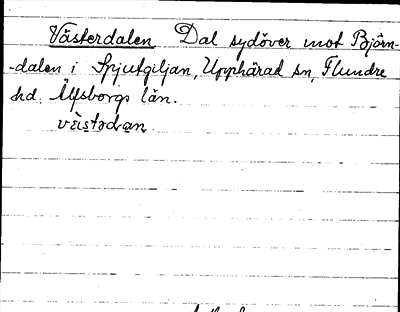 Västerdalen Dal sydöver mot Björn-
-dalen i Spjutgiljan, Upphärad sn, Flundre
hd. Älfsborgs län.
väistədan